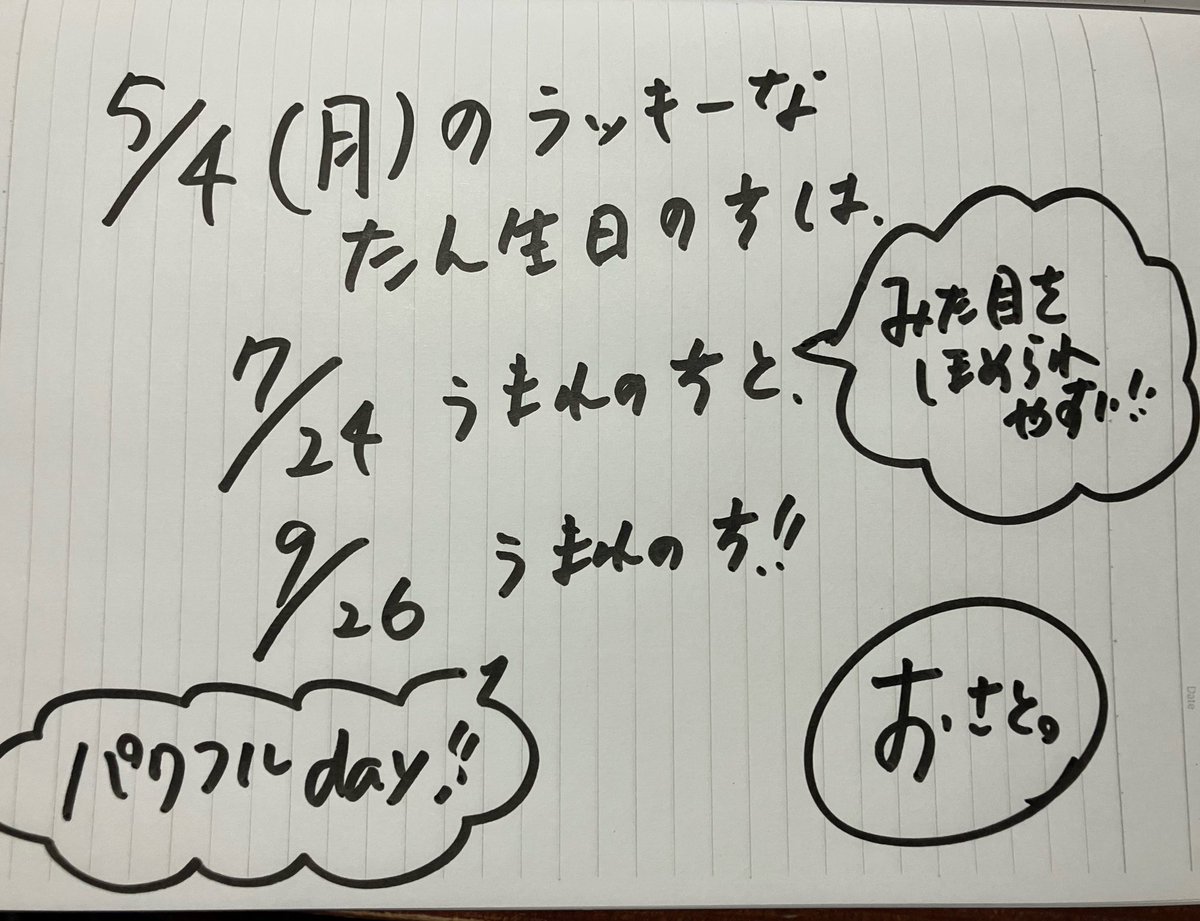 5/4(月)のラッキーな
たん生日の方は、
7/24 うまれの方と、
みた目を
ほめられ
やすい!!
9/26 うまれの方!!
パワフルday!!
おさと。
Date